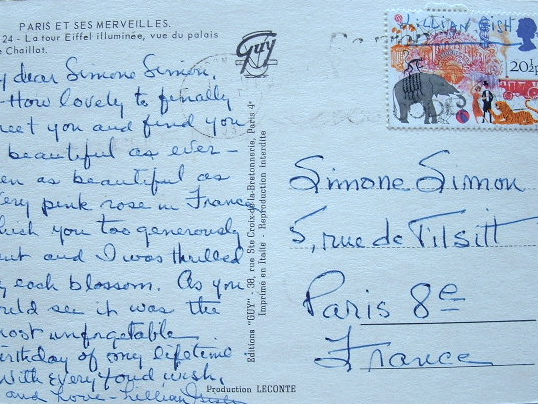 PARIS ET SES MERVEILLES.
24 - La tour Eiffel illuminée, vue du palais
e Chaillot.
y dear Simone Simon,
How lovely to finally
meet you and find you
beautiful as ever -
en as beautiful as
ery pink rose in France
hich you too generously
ent and I was thrilled
y each blossom. As you
uld see it was the
most unforgetable
irthday of my lifetime
With every fond wish,
and love - Lillian Gish
Guy
Editions "GUY" - 30, rue Ste Croix-de-la-Bretonnerie, Paris 4e
Imprimé en Italie - Reproduction Interdite
Production LECONTE
LILLIAN GISH
20½p
Simone Simon
5, rue de Tilsitt
Paris 8e
France